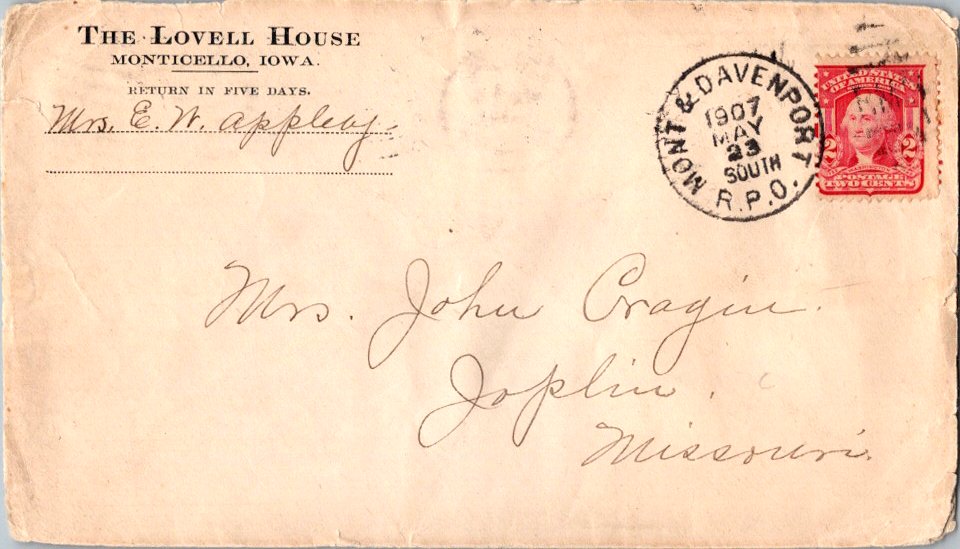 THE LOVELL HOUSE
MONTICELLO, IOWA.
RETURN IN FIVE DAYS.
Mrs. E. W. Appleby
MONT & DAVENPORT
1907
MAY
23
SOUTH
R.P.O.
UNITED STATES
OF AMERICA
2 2
POSTAGE
TWO CENTS
Mrs. John Cragin.
Joplin.
Missouri.